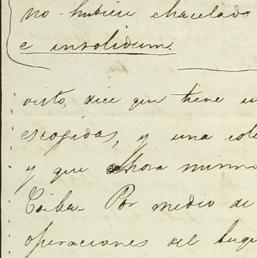 no hubiese chancelado
e insolidum.
visto, dice que tiene
escogidas, y una
y que ahora mismo
Por medio de
operaciones del buque